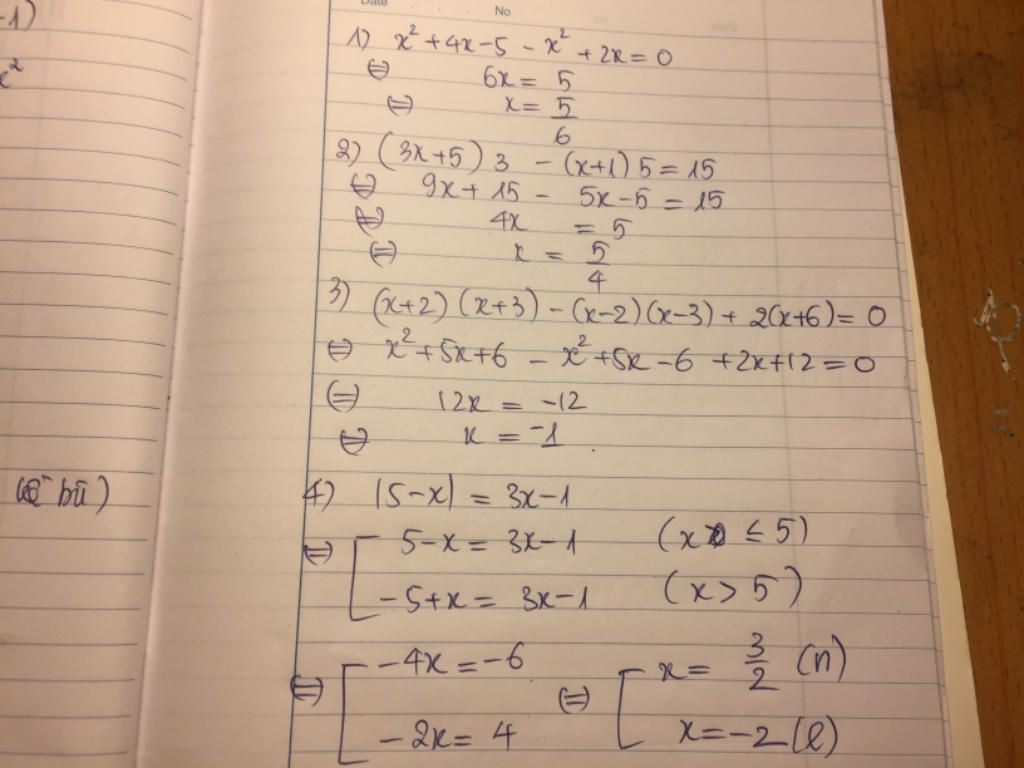 -1)
x²
(kề bù)
Date No
1) x² + 4x - 5 - x² + 2x = 0
⇔ 6x = 5
⇔ x = 5/6
2) (3x+5) 3 - (x+1) 5 = 15
⇔ 9x + 15 - 5x - 5 = 15
⇔ 4x = 5
⇔ x = 5/4
3) (x+2) (x+3) - (x-2) (x-3) + 2(x+6) = 0
⇔ x² + 5x + 6 - x² + 5x - 6 + 2x + 12 = 0
⇔ 12x = -12
⇔ x = -1
4) |5-x| = 3x-1
⇔ [ 5-x = 3x-1 (x ≤ 5)
-5+x = 3x-1 (x > 5)
⇔ [ -4x = -6 ⇔ [ x = 3/2 (n)
-2x = 4 x = -2 (l)